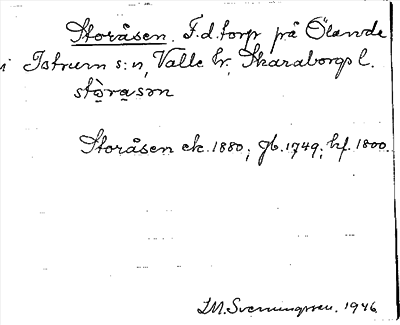 Storåsen. F.d. torp på Ölanda
i Istrum s:n, Valle hr, Skaraborgs l.
stò̱ra̱sən
Storåsen ek. 1880; gb. 1749; hf. 1800.
I.M. Svenningsson. 1946